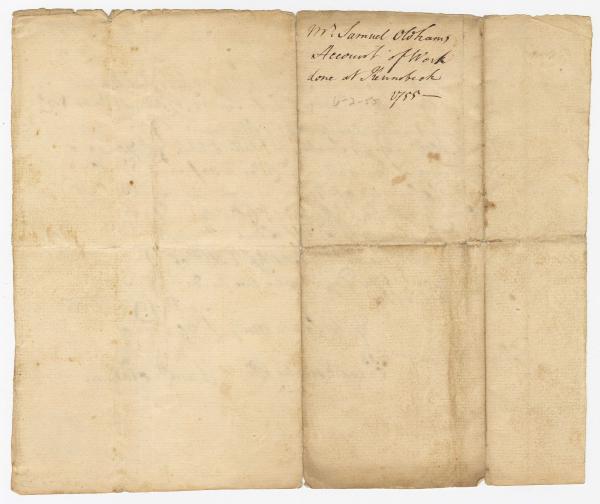 Mr. Samuel Oldhams
Account of Work
done at Kennebeck
1755—
6-2-55